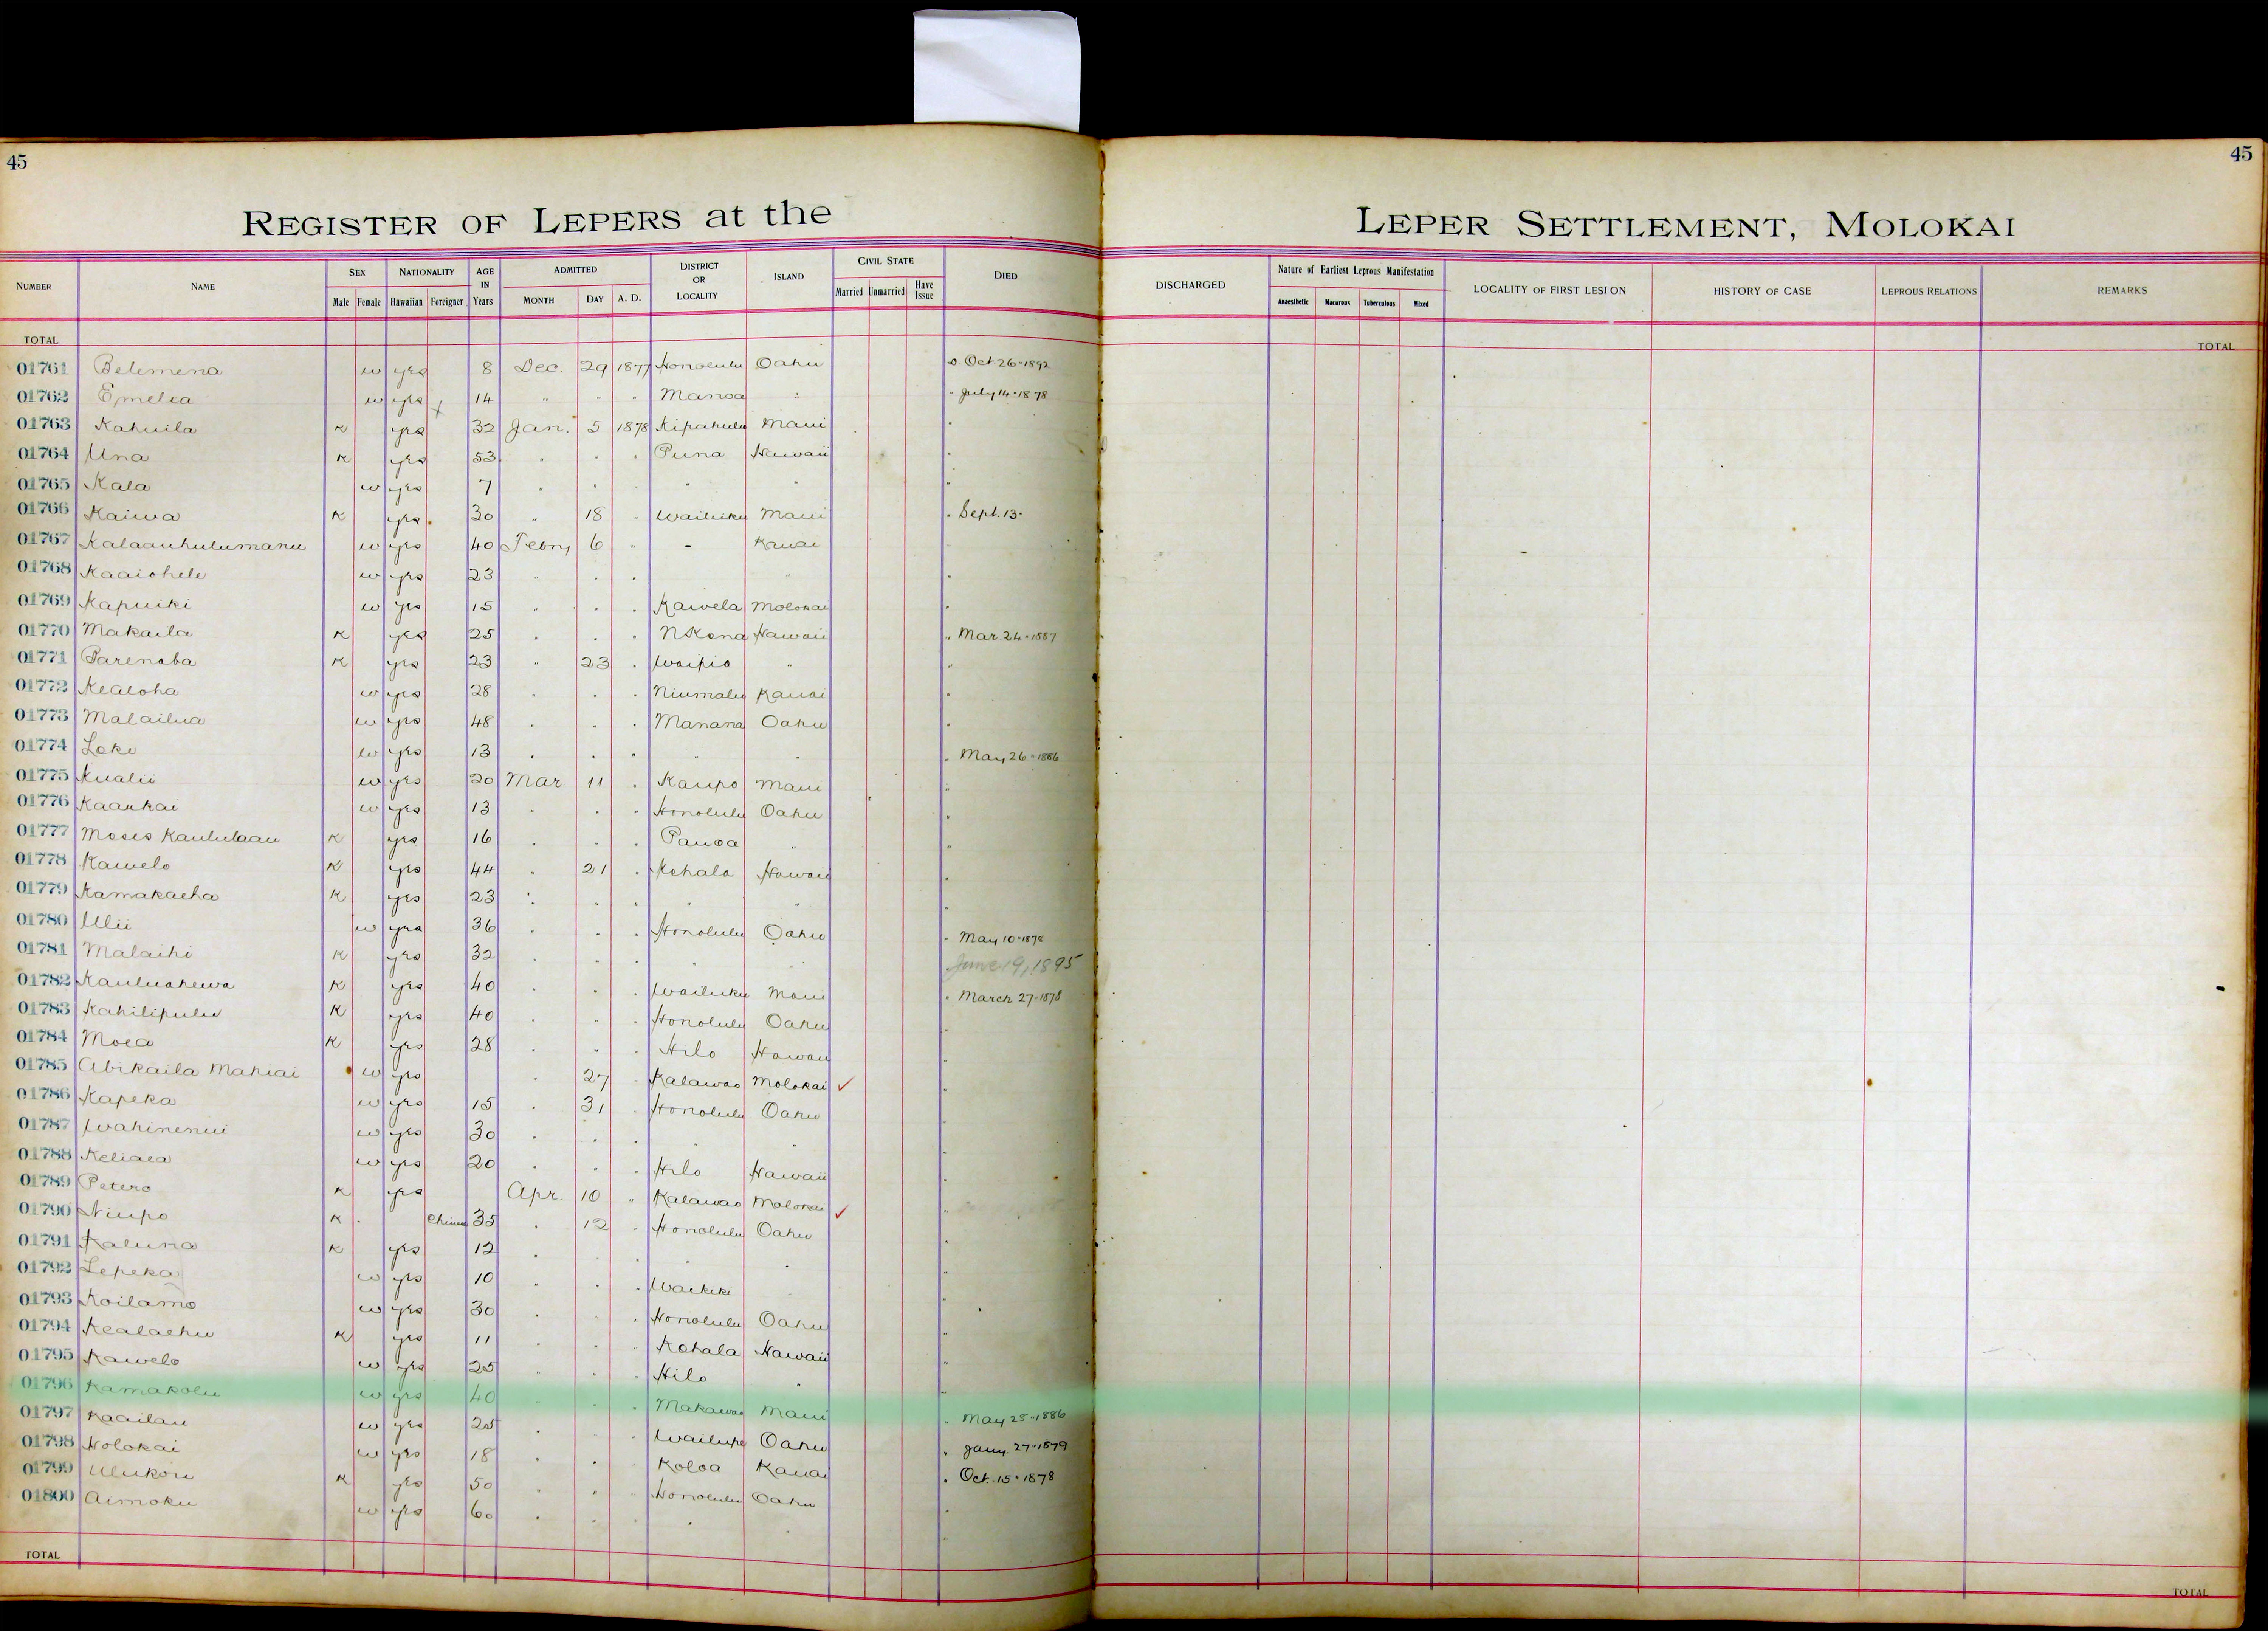 45
45
REGISTER OF LEPERS at the
LEPER SETTLEMENT, MOLOKAI
NUMBER NAME SEX Male Female NATIONALITY Hawaiian Foreigner AGE IN Years ADMITTED MONTH DAY A. D. DISTRICT OR LOCALITY ISLAND CIVIL STATE Married Unmarried Have Issue DIED
DISCHARGED Nature of Earliest Leprous Manifestation Anaesthetic Macurous Tuberculous Mixed LOCALITY OF FIRST LESION HISTORY OF CASE LEPROUS RELATIONS REMARKS
TOTAL
TOTAL
01761 Belemena w yes 8 Dec. 29 1877 Honolulu Oahu D. Oct 26-1892
01762 Emelia w yes 14 " " " Manoa " " July 14-1878
01763 Kahuila K yes 32 Jan. 5 1878 Kipahulu Maui "
01764 Una K yes 53 " " " Puna Hawaii "
01765 Kala w yes 7 " " " " " "
01766 Kaiwa K yes 30 " 18 " Wailuku Maui " Sept. 13-
01767 Kalaauhulumanu w yes 40 Febry 6 " - Kauai
01768 Kaaiohele w yes 23 " " " " "
01769 Kapuiki w yes 15 " " " Kawela Molokai "
01770 Makaila K yes 25 " " " N Kona Hawaii " Mar 24-1887
01771 Parenaba K yes 23 " 23 " Waipio " "
01772 Kealoha w yes 28 " " " Niumalu Kauai "
01773 Malailua w yes 48 " " " Manana Oahu "
01774 Loke w yes 13 " " " " " " May 26-1886
01775 Kualii w yes 20 Mar 11 " Kaupo Maui "
01776 Kaaukai w yes 13 " " " Honolulu Oahu "
01777 Moses Kaululaau K yes 16 " " " Pauoa " "
01778 Kawelo K yes 44 " 21 " Kohala Hawaii "
01779 Kamakaeha K yes 23 " " " " " "
01780 Ulii w yes 36 " " " Honolulu Oahu " May 10-1878
01781 Malaihi K yes 32 " " " " " June 19, 1895
01782 Kauluahewa K yes 40 " " " Wailuku Maui " March 27-1878
01783 Kahilipulu K yes 40 " " " Honolulu Oahu "
01784 Moea K yes 28 " " " Hilo Hawaii "
01785 Abikaila Mahiai w yes " 27 " Kalawao Molokai ✓ "
01786 Kapeka w yes 15 " 31 " Honolulu Oahu "
01787 Wahinenui w yes 30 " " " " " "
01788 Keliaea w yes 20 " " " Hilo Hawaii "
01789 Petero K yes Apr. 10 " Kalawao Molokai ✓ "
01790 Niupo K Chinese 35 " 12 " Honolulu Oahu "
01791 Kaluna K yes 12 " " "
01792 Lepeka w yes 10 " " " Waikiki "
01793 Koilamo w yes 30 " " " Honolulu Oahu "
01794 Kealaehu K yes 11 " " " Kohala Hawaii "
01795 Kawelo w yes 25 " " " Hilo " "
01796 Kamakolu w yes 40 " " " Makawao Maui " May 25-1886
01797 Kaailau w yes 25 " " " Wailupe Oahu " Jany. 27-1879
01798 Holokai w yes 18 " " " Koloa Kauai " Oct. 15-1878
01799 Ulukou K yes 50 " " " Honolulu Oahu "
01800 Aimoku w yes 60 " " " " " "
TOTAL
TOTAL